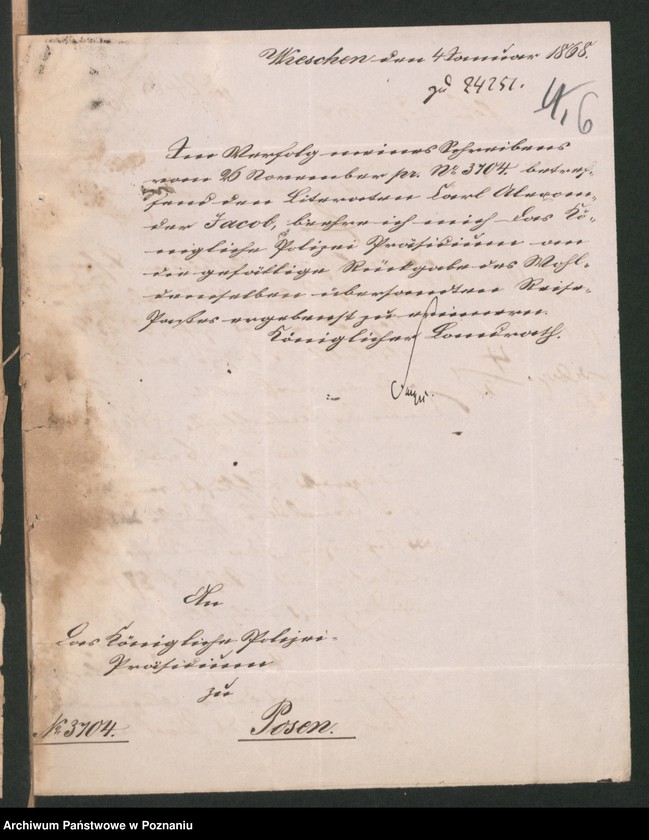 Wreschen den 4 Januar 1868.
zu 24251.
4/1 6
Im Verfolg meines Schreibens
vom 26 November pr. No 3704. betref-
fend den Literaten Carl Alexan-
der Jacob, beehre ich mich das Kö-
nigliche Polizei Präsidium an
die gefällige Rückgabe des Wohl-
demselben übersandten Reise-
Passes ergebenst zu erinnern.
Königlicher Landrath.
An
das Königliche Polizei-
Präsidium
zu
No 3704. Posen.
Archiwum Państwowe w Poznaniu